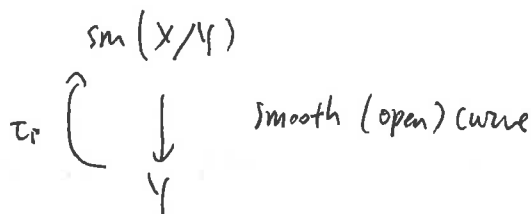 sm(X/Y)
τᵢ smooth (open) curve
Y